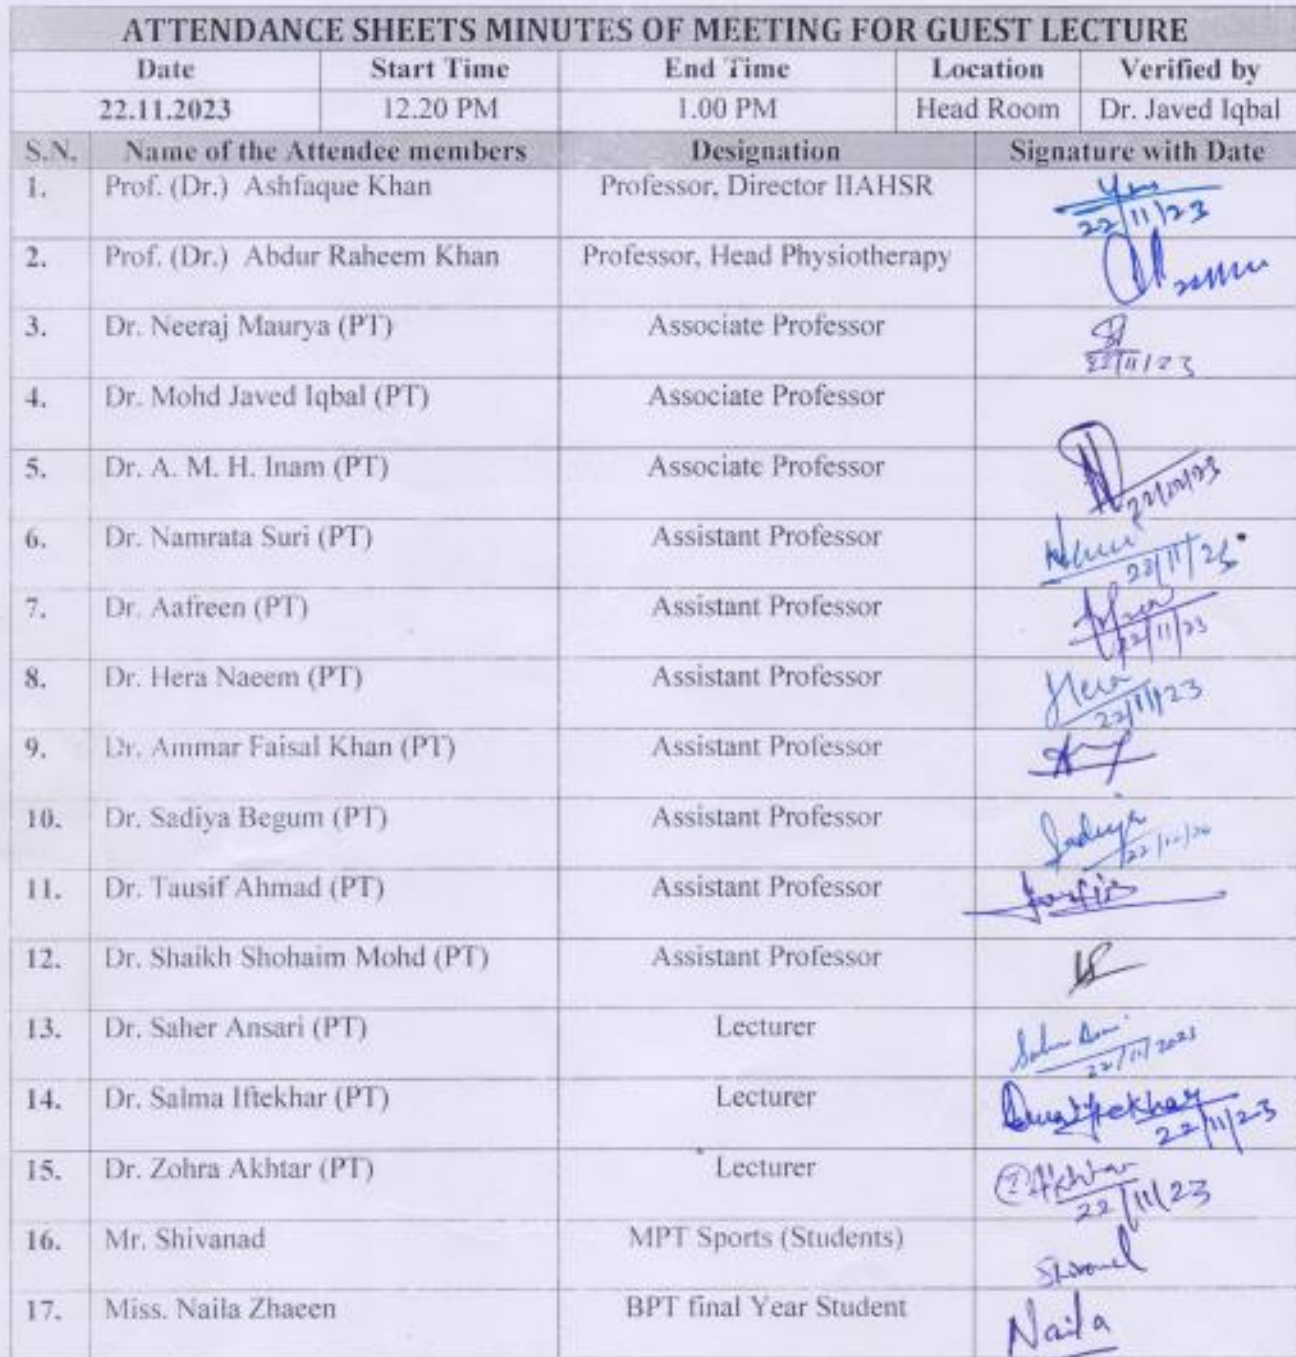 ATTENDANCE SHEETS MINUTES OF MEETING FOR GUEST LECTURE
Date Start Time End Time Location Verified by
22.11.2023 12.20 PM 1.00 PM Head Room Dr. Javed Iqbal
S.N. Name of the Attendee members Designation Signature with Date
1. Prof. (Dr.) Ashfaque Khan Professor, Director IIAHSR 22/11/23
2. Prof. (Dr.) Abdur Raheem Khan Professor, Head Physiotherapy
3. Dr. Neeraj Maurya (PT) Associate Professor 22/11/23
4. Dr. Mohd Javed Iqbal (PT) Associate Professor
5. Dr. A. M. H. Inam (PT) Associate Professor
6. Dr. Namrata Suri (PT) Assistant Professor
7. Dr. Aafreen (PT) Assistant Professor 22/11/23
8. Dr. Hera Naeem (PT) Assistant Professor Hera 22/11/23
9. Dr. Ammar Faisal Khan (PT) Assistant Professor
10. Dr. Sadiya Begum (PT) Assistant Professor Sadiya
11. Dr. Tausif Ahmad (PT) Assistant Professor
12. Dr. Shaikh Shohaim Mohd (PT) Assistant Professor
13. Dr. Saher Ansari (PT) Lecturer 22/11/2023
14. Dr. Salma Iftekhar (PT) Lecturer 22/11/23
15. Dr. Zohra Akhtar (PT) Lecturer Akhtar 22/11/23
16. Mr. Shivanad MPT Sports (Students)
17. Miss. Naila Zhaeen BPT final Year Student Naila